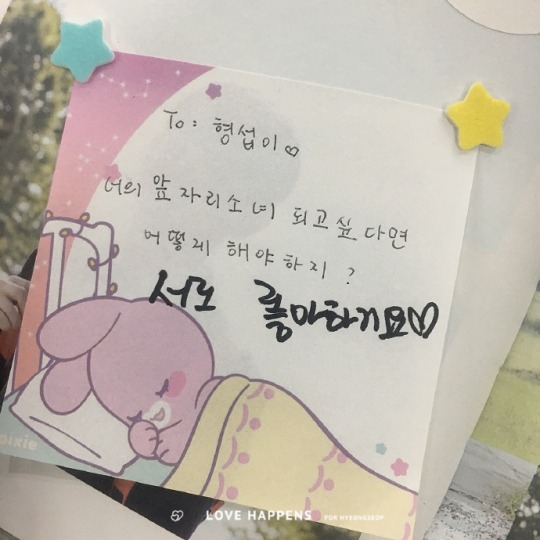 To: 형섭이♡
너의 앞자리소녀 되고싶다면
어떻게 해야하지?
서로 좋아하기요♡
pixie
LOVE HAPPENS FOR HYEONGSEOP